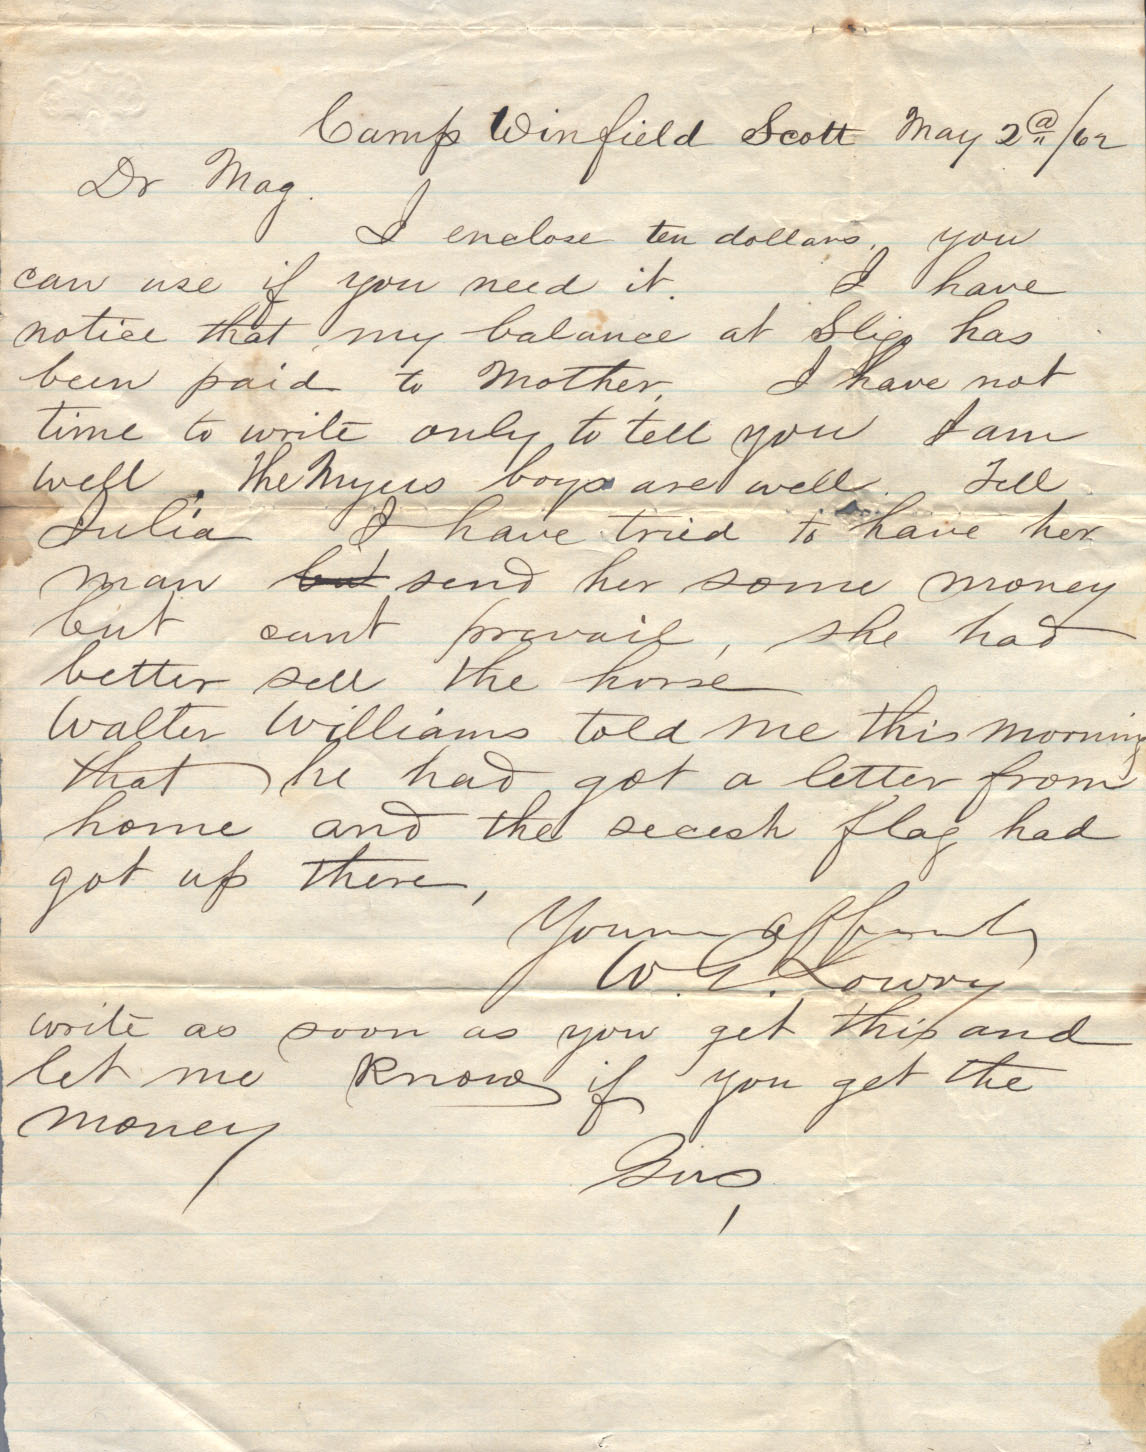 Camp Winfield Scott May 2d/62
Dr Mag.
I enclose ten dollars, you
can use if you need it. I have
notice that my balance at Sligo has
been paid to Mother, I have not
time to write only to tell you I am
well. The Myers boys are well. Tell
Julia I have tried to have her
man but send her some money
but cant prevail, she had
better sell the horse
Walter Williams told me this morning
that he had got a letter from
home and the secesh flag had
got up there,
Yours
W. G. Lowry
write as soon as you get this and
let me know if you get the
money